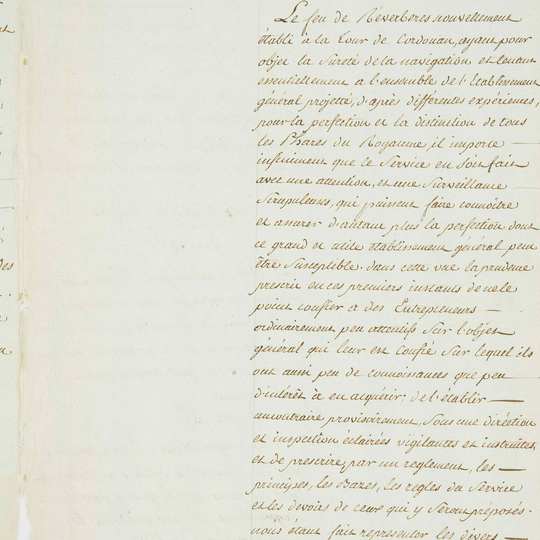 Le feu de Réverberes nouvellement
établi à la Tour de Cordouan, ayant pour
objet la Sureté de la navigation et tenant
essentiellement a l'ensemble de l'Etablissement
général projetté, d'après différentes expériences,
pour la perfection et la distinction de tous
les Phares du Royaume, il importe —
infiniment que le Service en Soit fait
avec une attention, et une Surveillance —
Scrupuleuses, qui puissent faire connoitre
et assurer d'autant plus la perfection dont
ce grand et utile établissement général peut
être Susceptible. dans cette vue la prudence
prescrit en ces premiers instants de ne le
point confier a des Entrepreneurs —
ordinairement peu attentifs Sur l'objet
général qui leur est confié Sur lequel ils
ont aussi peu de connoissances que peu
d'intérêt à en acquérir; de l'établir —
au contraire provisoirement, Sous une direction
et inspection éclairées vigilantes et instruites,
et de prescrire, par un reglement, les —
principes, les Bazes, les regles du Service
et les devoirs de ceux qui y Seront préposés.
nous étant fait representer les divers —
des